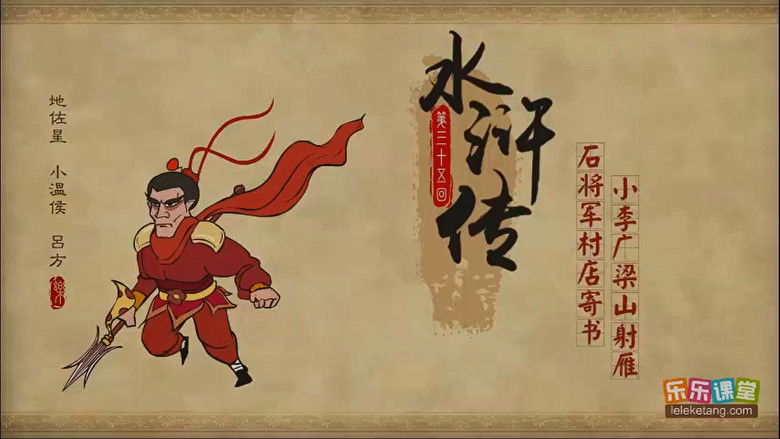 地佐星 小溫侯 呂方
水浒传
第三十五回
石将军村店寄书
小李广梁山射雁
乐乐课堂
leleketang.com